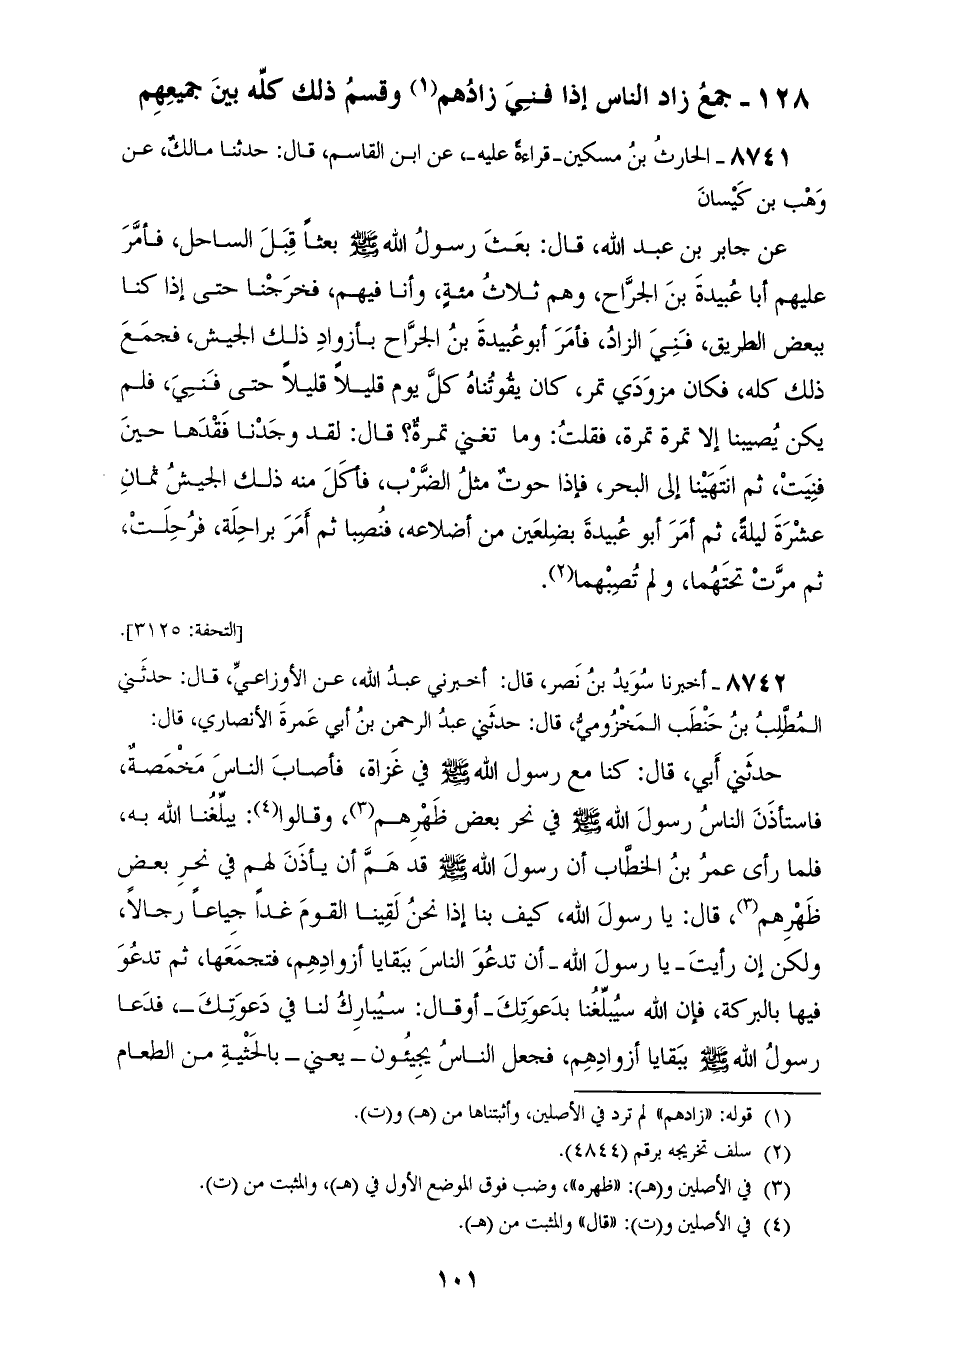 ١٢٨ ـ جمعُ زاد الناس إذا فنِيَ زادُهم(١) وقسمُ ذلك كلِّه بينَ جميعِهِم
٨٧٤١ ـ الحارثُ بنُ مسكين ـ قراءةً عليه ـ، عن ابن القاسم، قال: حدثنا مالكٌ، عن
وَهْب بن كَيْسانَ
عن جابر بن عبد الله، قال: بعَثَ رسولُ الله ﷺ بعثاً قِبَلَ الساحل، فأمَّرَ
عليهم أبا عُبيدةَ بنَ الجرَّاح، وهم ثلاثُ مئةٍ، وأنا فيهم، فخرَجْنا حتى إذا كنا
ببعض الطريق، فَنِيَ الزادُ، فأمَرَ أبو عُبيدةَ بنُ الجرَّاح بأزوادِ ذلك الجيش، فجمَعَ
ذلك كله، فكان مزودَي تمر، كان يقُوتُناهُ كلَّ يوم قليلاً قليلاً حتى فَنِيَ، فلم
يكن يُصيبنا إلا تمرة تمرة، فقلتُ: وما تغني تمرةٌ؟ قال: لقد وجَدْنا فَقْدَها حينَ
فنِيَتْ، ثم انتَهَيْنا إلى البحر، فإذا حوتٌ مثلُ الضَّرْب، فأكَلَ منه ذلك الجيشُ ثمانِ
عشْرَةَ ليلةً، ثم أمَرَ أبو عُبيدةَ بضِلعَين من أضلاعه، فنُصِبا ثم أَمَرَ براحِلَة، فرُحِلَتْ،
ثم مرَّتْ تحتَهُما، ولم تُصِبْهما(٢).
[التحفة: ٣١٢٥].
٨٧٤٢ ـ أخبرنا سُوَيدُ بنُ نَصر، قال: أخبرني عبدُ الله، عن الأوزاعيِّ، قال: حدثَني
المُطَّلِبُ بنُ حَنْطَب المَخْزُوميُّ، قال: حدثَني عبدُ الرحمن بنُ أبي عَمرةَ الأنصاري، قال:
حدثَني أَبي، قال: كنا مع رسول الله ﷺ في غَزاة، فأصابَ الناسَ مَخْمَصةٌ،
فاستأذَنَ الناسُ رسولَ الله ﷺ في نحر بعض ظَهْرِهم(٣)، وقالوا(٤): يبلِّغُنا الله به،
فلما رأى عمرُ بنُ الخطَّاب أن رسولَ الله ﷺ قد هَمَّ أن يأذَنَ لهم في نحرِ بعض
ظَهْرِهم(٣)، قال: يا رسولَ الله، كيف بنا إذا نحنُ لَقِينا القومَ غداً جِياعاً رجالاً،
ولكن إن رأيتَ ـ يا رسولَ الله ـ أن تدعُوَ الناسَ ببَقايا أزوادِهِم، فتجمَعَها، ثم تدعُوَ
فيها بالبركة، فإن الله سيُبلِّغُنا بدَعوَتِكَ ـ أوقال: سيُبارِكُ لنا في دَعوَتِكَ ـ، فدَعا
رسولُ الله ﷺ ببَقايا أزوادِهِم، فجعل الناسُ يجيئُون ـ يعني ـ بالحَثْيةِ من الطعام
(١) قوله: «زادهم» لم ترد في الأصلين، وأثبتناها من (هـ) و(ت).
(٢) سلف تخريجه برقم (٤٨٤٤).
(٣) في الأصلين و(هـ): «ظهره»، وضب فوق الموضع الأول في (هـ)، والمثبت من (ت).
(٤) في الأصلين و(ت): «قال» والمثبت من (هـ).
١٠١